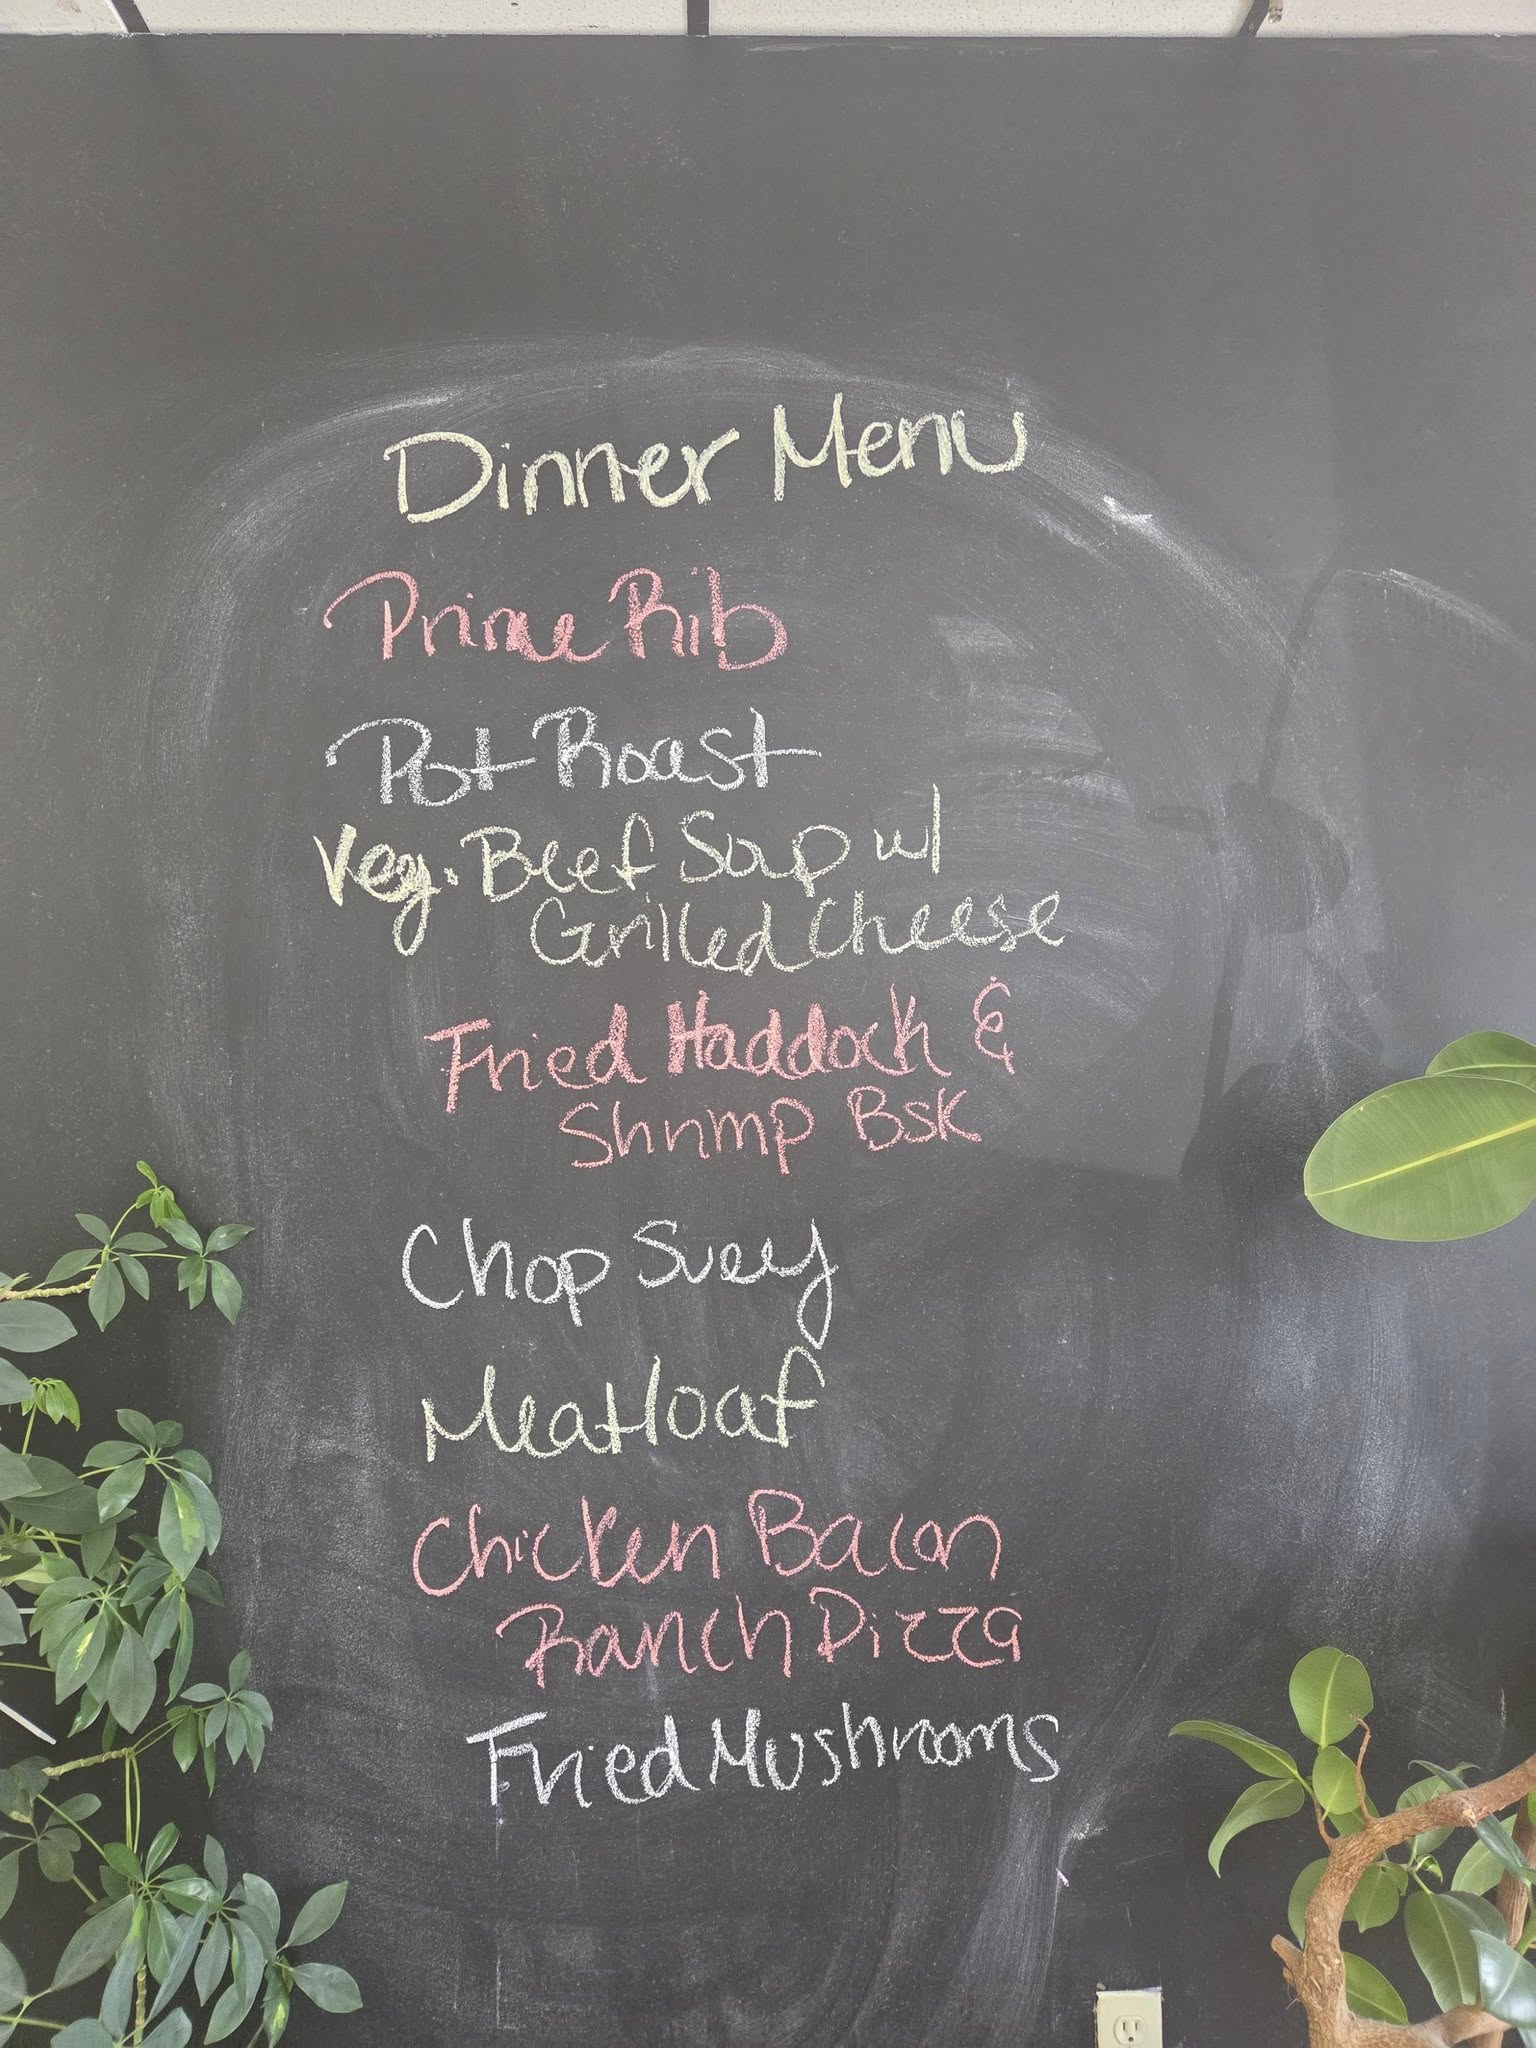 Dinner Menu
Prime Rib
Pot Roast
Veg. Beef Soup w/
Grilled Cheese
Fried Haddock &
Shrimp Bsk
Chop Suey
Meatloaf
Chicken Bacon
Ranch Pizza
Fried Mushrooms